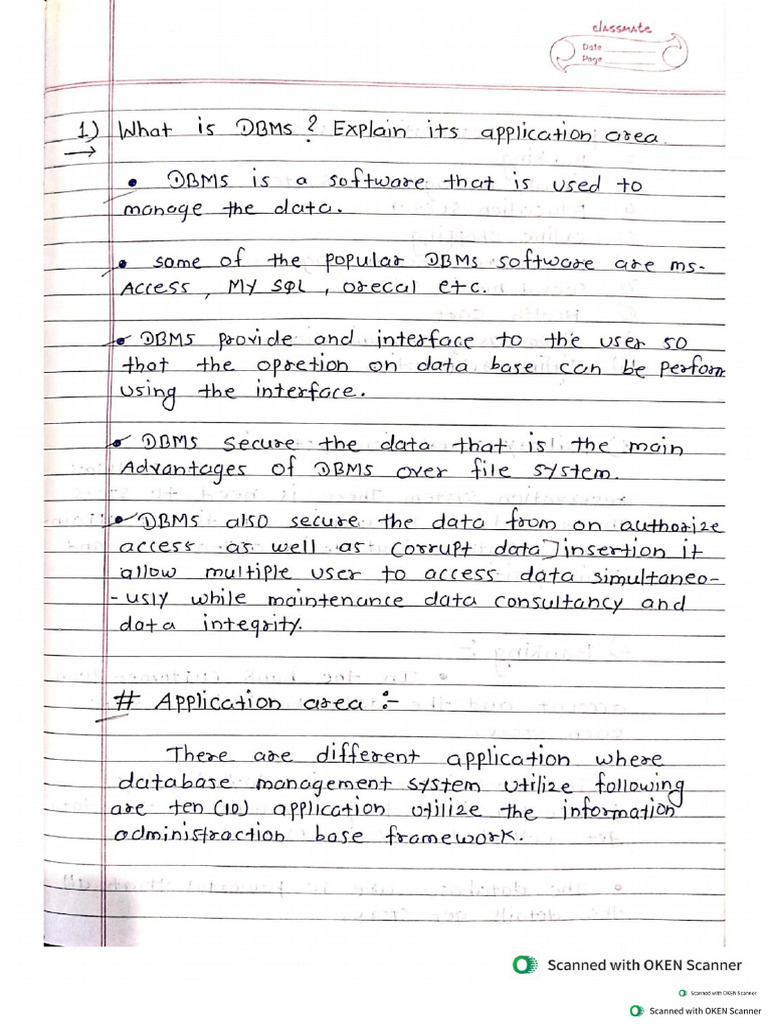 classmate
Date
Page
1) What is DBMS ? Explain its application area.
→
• DBMS is a software that is used to
manage the data.
• some of the popular DBMS software are ms-
Access , My SQL , orecal etc.
• DBMS provide and interface to the user so
that the opretion on data base can be perform
using the interface.
• DBMS secure the data that is the main
Advantages of DBMS over file system.
• DBMS also secure the data from on authorize
access as well as corrupt data insertion it
allow multiple user to access data simultaneo-
-usly while maintenance data consultancy and
data integrity.
# Application area :-
There are different application where
database management system utilize following
are ten (10) application utilize the information
administraction base framework.
Scanned with OKEN Scanner
Scanned with OKEN Scanner
Scanned with OKEN Scanner